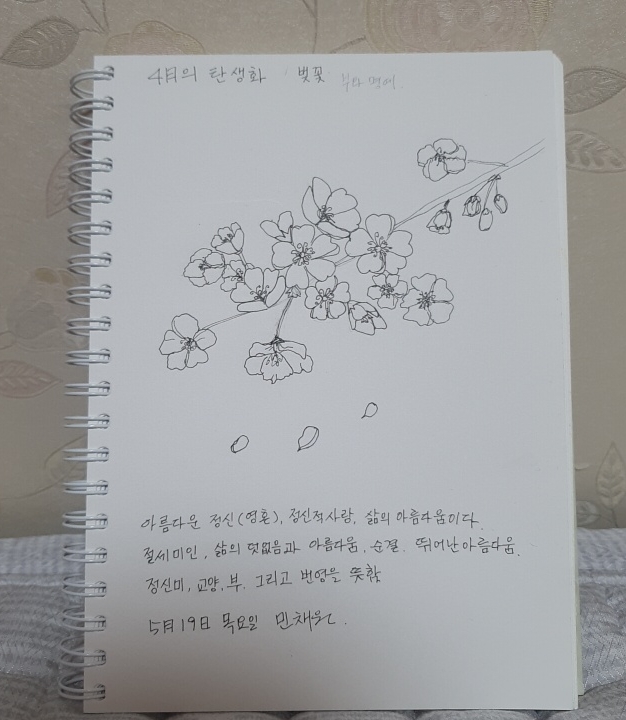 4月의 탄생화 벚꽃 부와 명예.
아름다운 정신(영혼), 정신적사랑, 삶의 아름다움이다.
절세미인, 삶의 덧없음과 아름다움, 순결, 뛰어난아름다움,
정신미, 교양, 부, 그리고 번영을 뜻함
5月 19日 목요일 민채원.